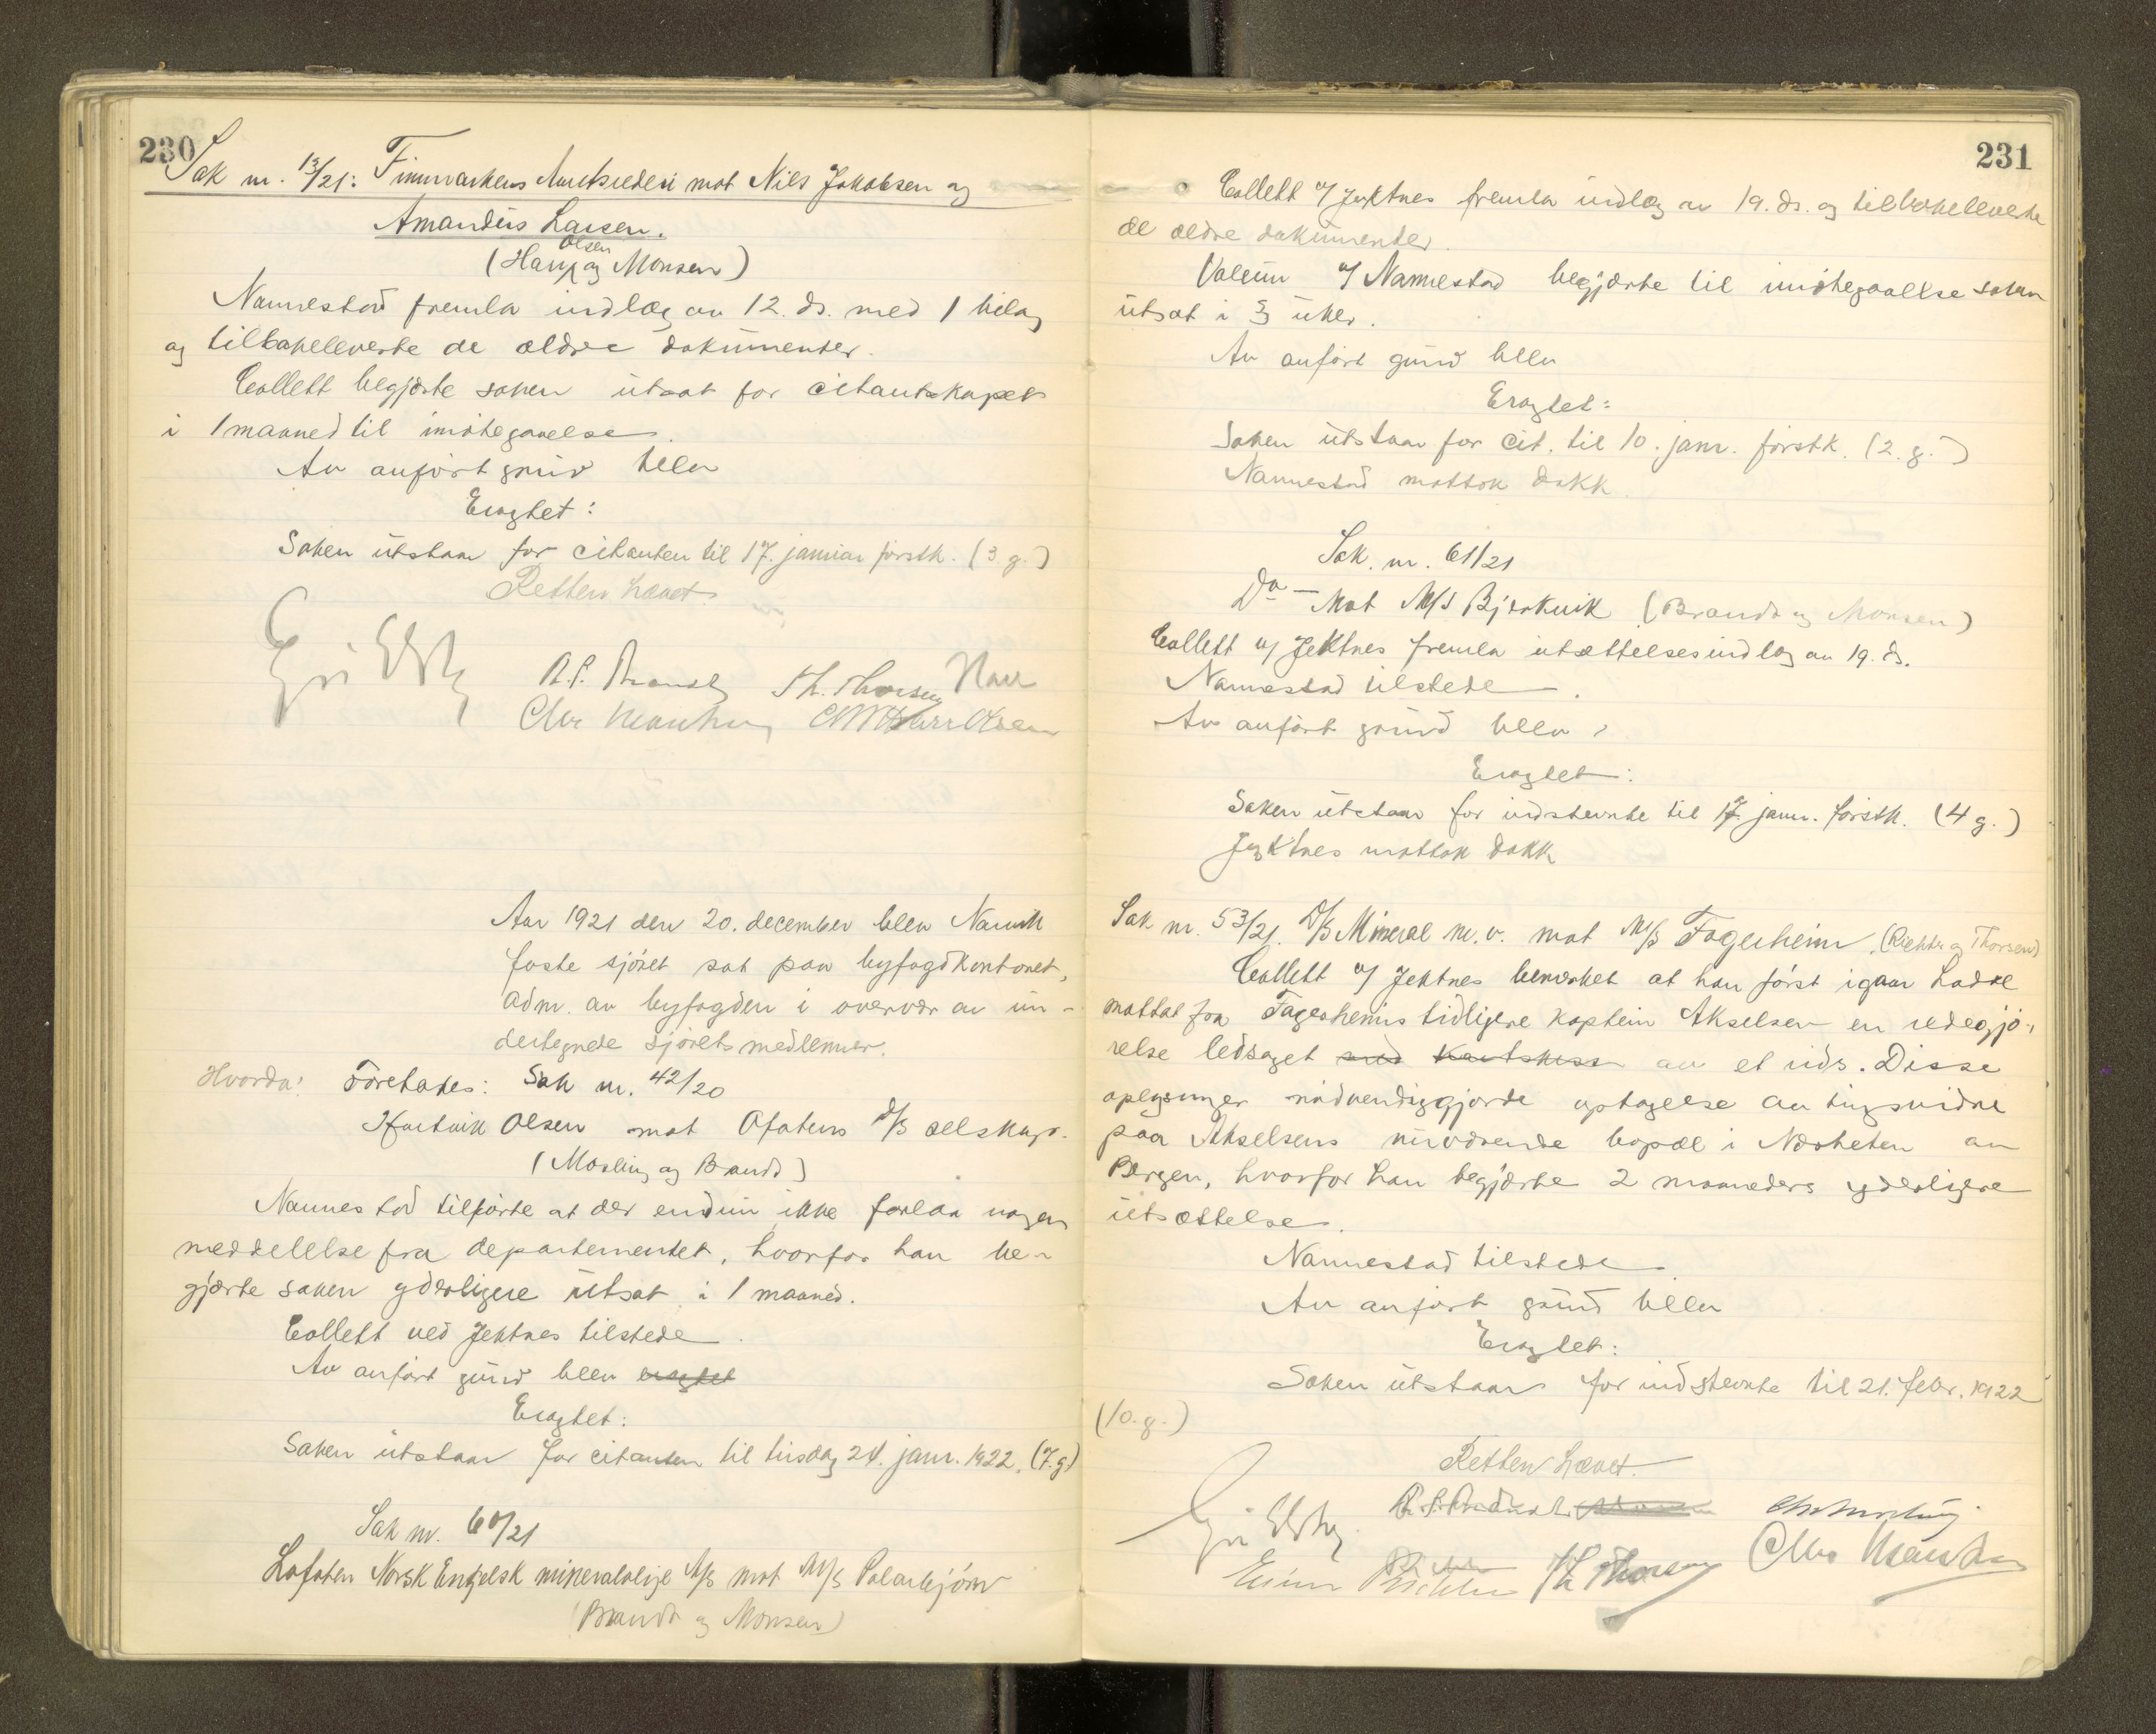 230
Sak nr. 13/21: Finmarkens Amtsrederi mot Nils Jakobsen og
Amandus Larsen.
(Harr Olsen og Monsen)
Nannestad fremla indlæg av 12. ds. med 1 bilag
og tilbakeleverte de ældre dokumenter.
Collett begjærte saken utsat for citantskapet
i 1 maaned til imøtegaaelse.
Av anført grund blev
Eragtet:
Saken utstaar for citanten til 17. januar førstk. (3. g.)
Retten hævet.
Aar 1921 den 20. december blev Narvik
faste sjøret sat paa byfogdkontoret,
adm. av byfogden i overvær av un-
dertegnede sjøretsmedlemmer.
Hvorda: Foretakes: Sak nr. 42/20
Hartvik Olsen mot Ofotens D/S selskap.
(Mosling og Brandt)
Nannestad tilførte at der endnu ikke forlaa nogen
meddelelse fra departementet, hvorfor han be-
gjærte saken yderligere utsat i 1 maaned.
Collett ved Jektnes tilstede.
Av anført grund blev eragtet
Eragtet:
Saken utstaar for citanten til tirsdag 24. janr. 1922. (7. g.)
Sak nr. 60/21
Lofoten Norsk Engelsk mineralolje A/S mot M/S Polarbjørn
(Brandt og Monsen)
231
Collett v/ Jektnes fremla indlæg av 19. ds. og tilbakeleverte
de ældre dokumenter.
v/ Nannestad begjærte til imøtegaaelse saken
utsat i 3 uker.
Av anført grund blev
Eragtet:
Saken utstaar for cit. til 10. janr. førstk. (2. g.)
Nannestad mottok dokk.
Sak nr. 61/21
Do — mot M/S Bjerkvik (Brandt og Monsen)
Collett v/ Jektnes fremla utsættelsesindlæg av 19. ds.
Nannestad tilstede.
Av anført grund blev
Eragtet:
Saken utstaar for indstevnte til 17. janr. førstk. (4 g.)
Jektnes mottok dokk
Sak nr. 53/21. D/S Mineral m.v. mot M/S Fagerheim. (Richter og Thorsen)
Collett v/ Jektnes bemærket at han først igaar hadde
mottat fra Fagerheims tidligere kaptein Akselsen en redegjø-
relse ledsaget med kartskisse av et rids. Disse
oplysninger nødvendiggjorde optagelse av tingsvidne
paa Akselsens nuværende bopæl i Nærheten av
Bergen, hvorfor han begjærte 2 maaneders yderligere
utsættelse.
Nannestad tilstede.
Av anført grund blev
Eragtet:
Saken utstaar for indstevnte til 21. febr. 1922
(10. g.)
Retten hævet.